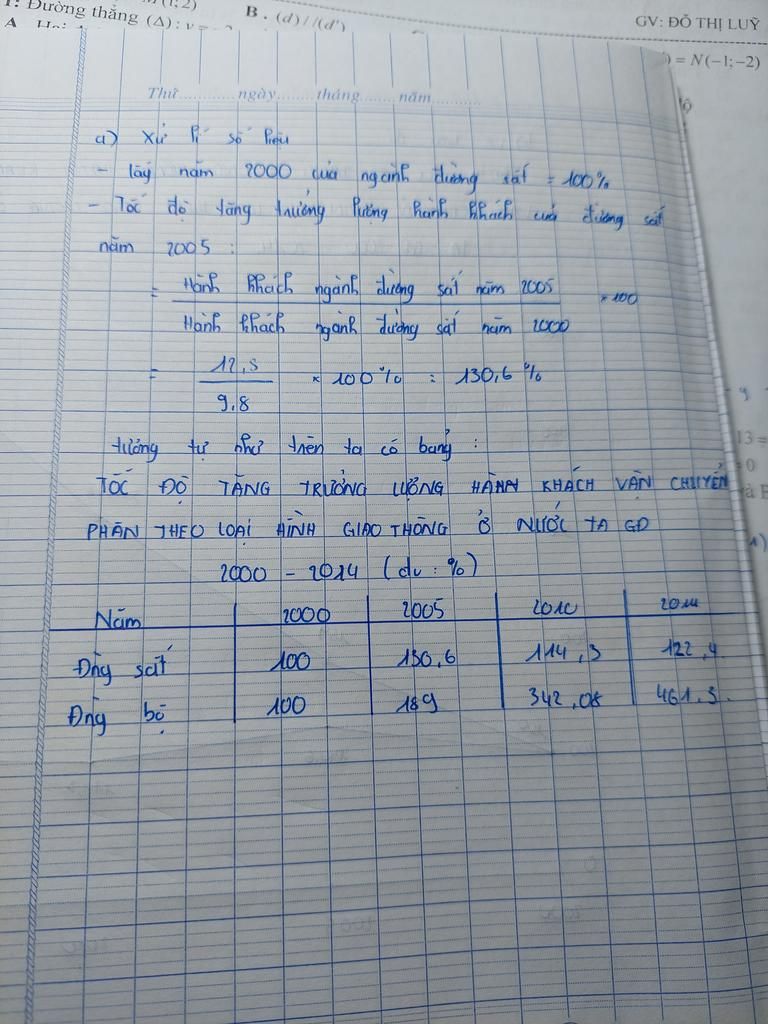 1: Đường thẳng (Δ): y =
B. (d)//(d')
GV: ĐỖ THỊ LUỸ
A
= N(−1;−2)
Thứ ........ ngày ........ tháng ........ năm ............
a) Xử lí số liệu
- lấy năm 2000 của ngành đường sắt = 100%
- Tốc độ tăng trưởng lượng hành khách của đường sắt
năm 2005 :
= Hành khách ngành đường sắt năm 2005 × 100
Hành khách ngành đường sắt năm 2000
= 12,8 × 100% = 130,6 %
9,8
tương tự như trên ta có bảng :
TỐC ĐỘ TĂNG TRƯỞNG LƯỢNG HÀNH KHÁCH VẬN CHUYỂN
PHÂN THEO LOẠI HÌNH GIAO THÔNG Ở NƯỚC TA GĐ
2000 - 2014 (đv : %)
Năm 2000 2005 2010 2014
Đng sắt 100 130,6 114,3 122,4
Đng bộ 100 189 342,08 461,3